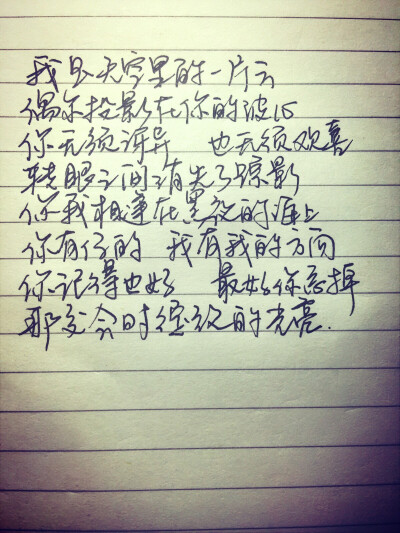 我是天空里的一片云
偶尔投影在你的波心
你无须讶异 也无须欢喜
转眼之间消失了踪影
你我相逢在黑夜的海上
你有你的 我有我的方向
你记得也好 最好你忘掉
那交会时的光亮.